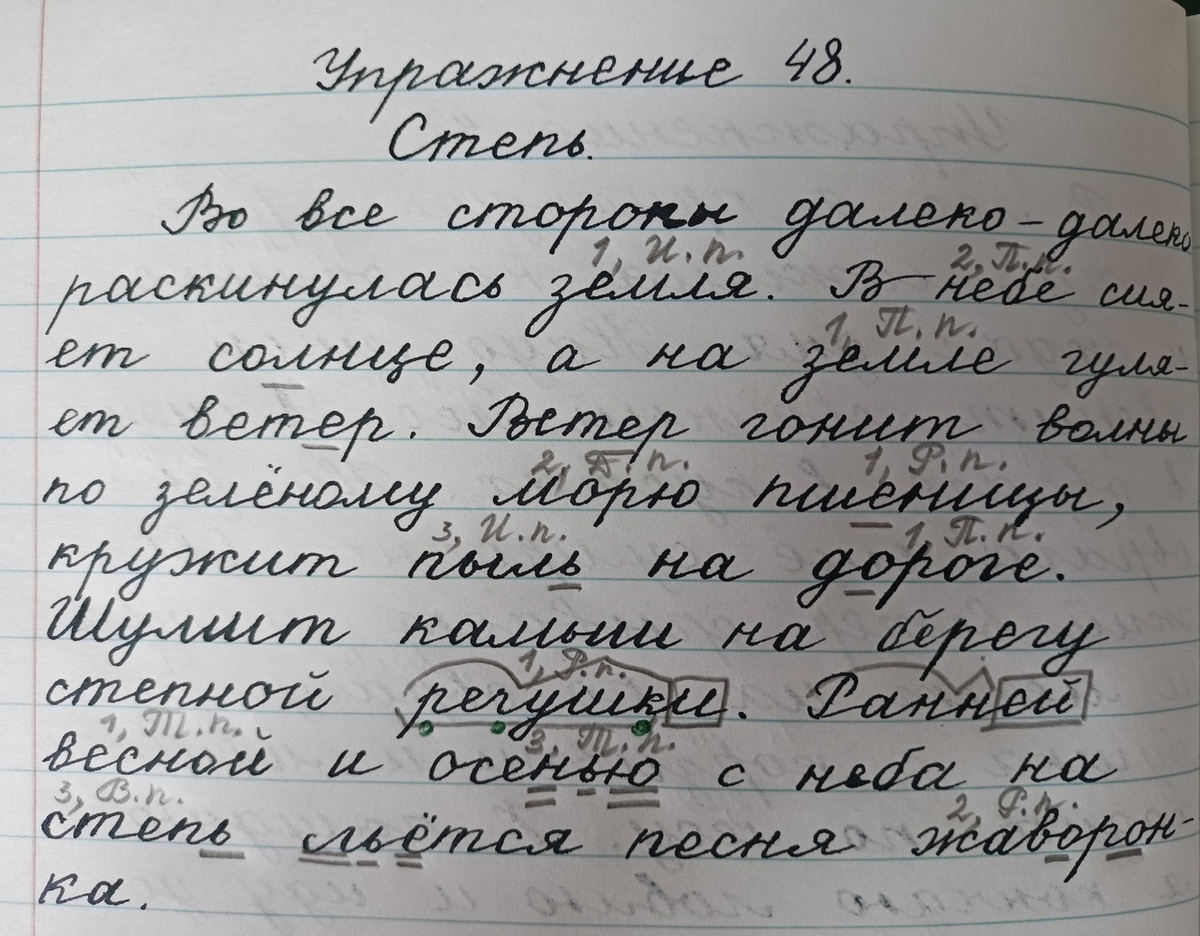 Упражнение 48.
Степь.
Во все стороны далеко-далеко
1, И. п. 2, П. п.
раскинулась земля. В небе сия-
1, П. п.
ет солнце, а на земле гуля-
ет ветер. Ветер гонит волны
2, Д. п. 1, Р. п.
по зелёному морю пшеницы,
3, И. п. 1, П. п.
кружит пыль на дороге.
Шумит камыш на берегу
1, Р. п.
степной речушки. Ранней
1, Т. п. 3, Т. п.
весной и осенью с неба на
3, В. п. 2, Р. п.
степь льётся песня жаворон-
ка.